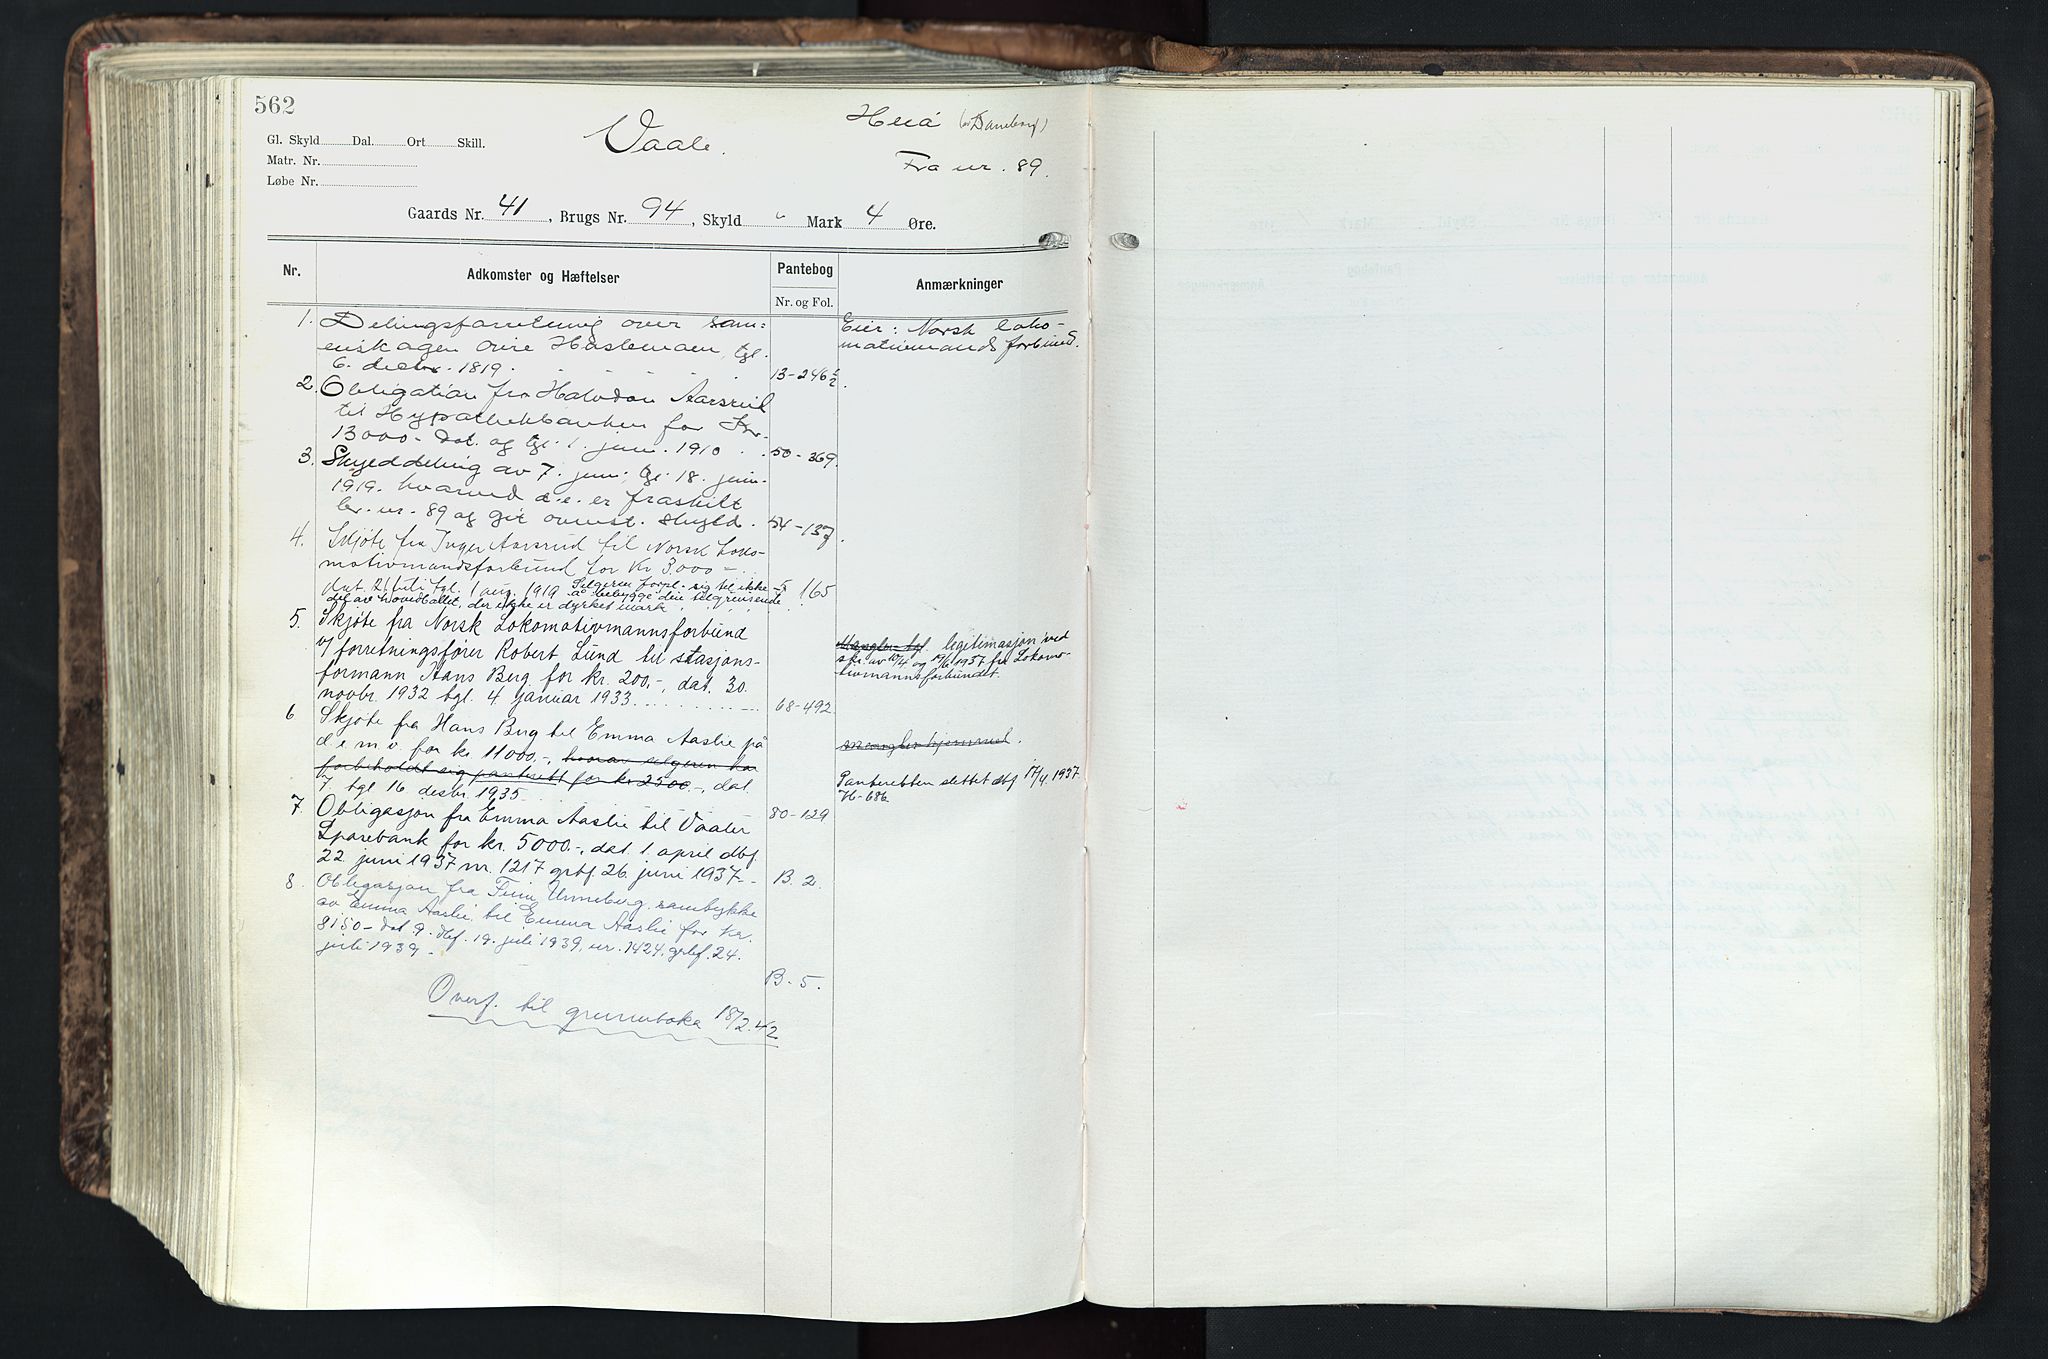 562
Gl. Skyld Dal. Ort Skill.
Matr. Nr.
Løbe Nr.
Vaale.
Heiå
Fra nr. 89.
Gaards Nr. 41, Brugs Nr. 94, Skyld " Mark 4 Øre.
Nr.
Adkomster og Hæftelser
Pantebog
Nr. og Fol.
Anmærkninger
1. Delingsforretning over sam-
eiskogen tgl.
6. decbr. 1819. 13-246
Eier: Norsk loko-
motivmands forbund.
2. Obligation fra Halvdan Aarsrud
til Hypothekbanken for Kr.
13000- dat. og tgl. 1. juni 1910 50-369.
3. Skylddeling av 7. juni, tgl. 18. juni
1919. hvorved d.e. er fraskilt
br. nr. 89 og git ovenst. skyld. 54-137
4. Skjøte fra Inger Aarsrud til Norsk Loko-
motivmandsforbund for Kr 3000-
dat. tgl. 1 aug. 1919. Selgeren forpl. sig til ikke 165
at bebygge den tilgrensende
del av hovedbøllet, der ikke er dyrket mark
5. Skjøte fra Norsk Lokomotivmannsforbund
v/ forretningsfører Robert Lund til stasjons-
formann Hans Berg for kr. 200.-, dat. 30.
novbr. 1932 tgl. 4 januar 1933. 68-492
Mangler tgl. legitimasjon ved
skr. av 10/4 og 19/6 1937 fra Lokomo-
tivmannsforbundet.
6 Skjøte fra Hans Berg til Emma Aaslie på
d.e. m.v. for kr. 11000.-, hvorav selgeren har
forbeholdt sig panterett for kr. 2500.-, dat.
7 tgl 16. desbr. 1935. 80-129
mangler hjemmel.
Panteretten slettet dbf 17/4. 1937
H-686
7. Obligasjon fra Emma Aaslie til Vaaler
Sparebank for kr. 5000.-, dat. 1. april dbf.
22. juni 1937 nr. 1217 grbf. 26. juni 1937. B. 2.
8. Obligasjon fra Finn Unneberg, samtykke
av Emma Aaslie, til Emma Aaslie for kr.
8150- dat 9. dbf. 19. juli 1939, nr. 1424, grbf. 24.
juli 1939. B. 5.
Overf. til grunnboka 18/2.42